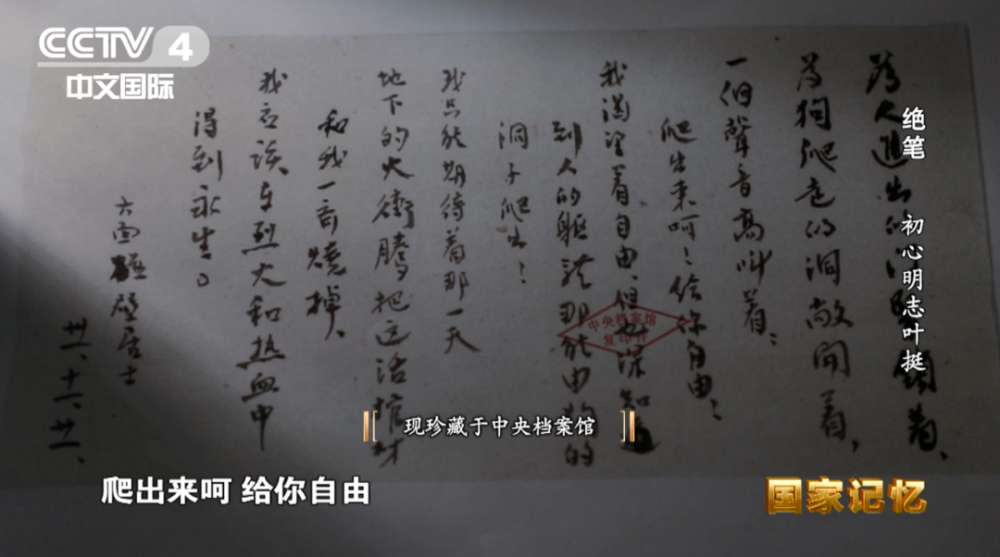 CCTV 4
中文国际
绝笔 初心明志叶挺
為人進出的门緊鎖着、
為狗爬走的洞敞開着、
一個聲音高叫着：
爬出来呵！給你自由！
我渴望着自由、但也深知道
到人的軀體那能由狗的
洞子爬出！
我只能期待着那一天
地下的火衝騰把这活棺材
和我一齊燒掉、
我应该在烈火和热血中
得到永生。
六面碰壁居士
卅一、十一、廿一、
中央档案馆
复印件
现珍藏于中央档案馆
爬出来呵 给你自由
国家记忆